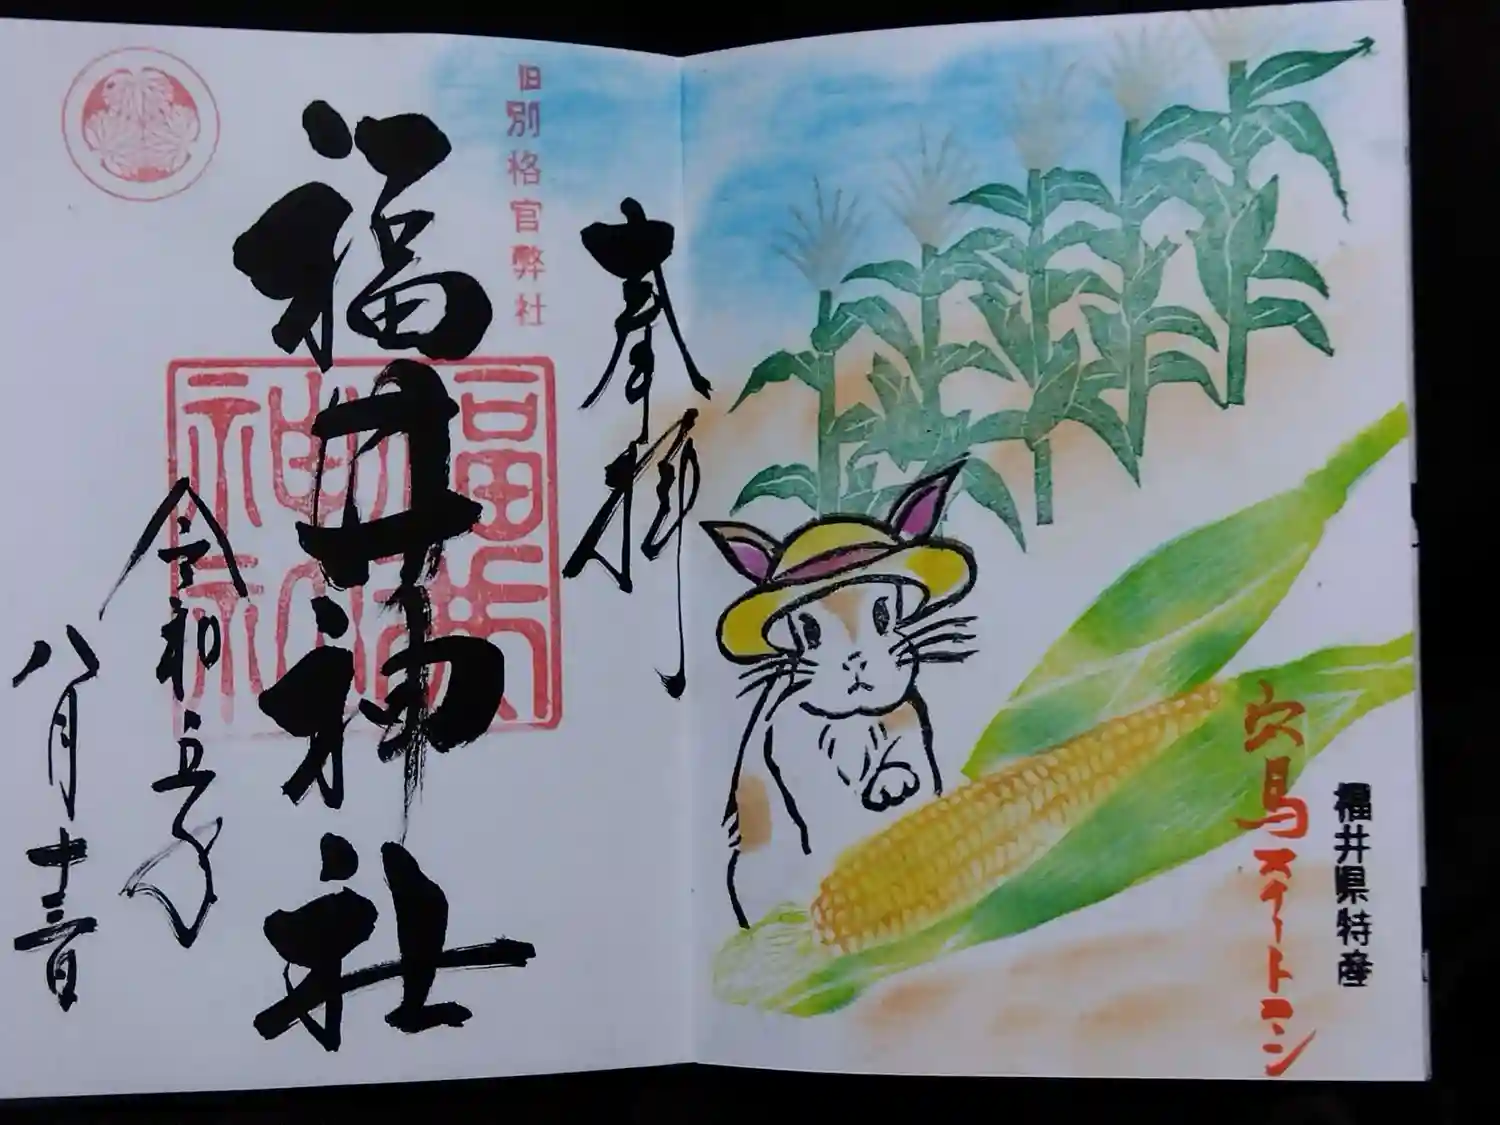 福井県特産
穴馬スイートコーン
奉拝
旧別格官幣社
福井神社
令和五年
八月十三日